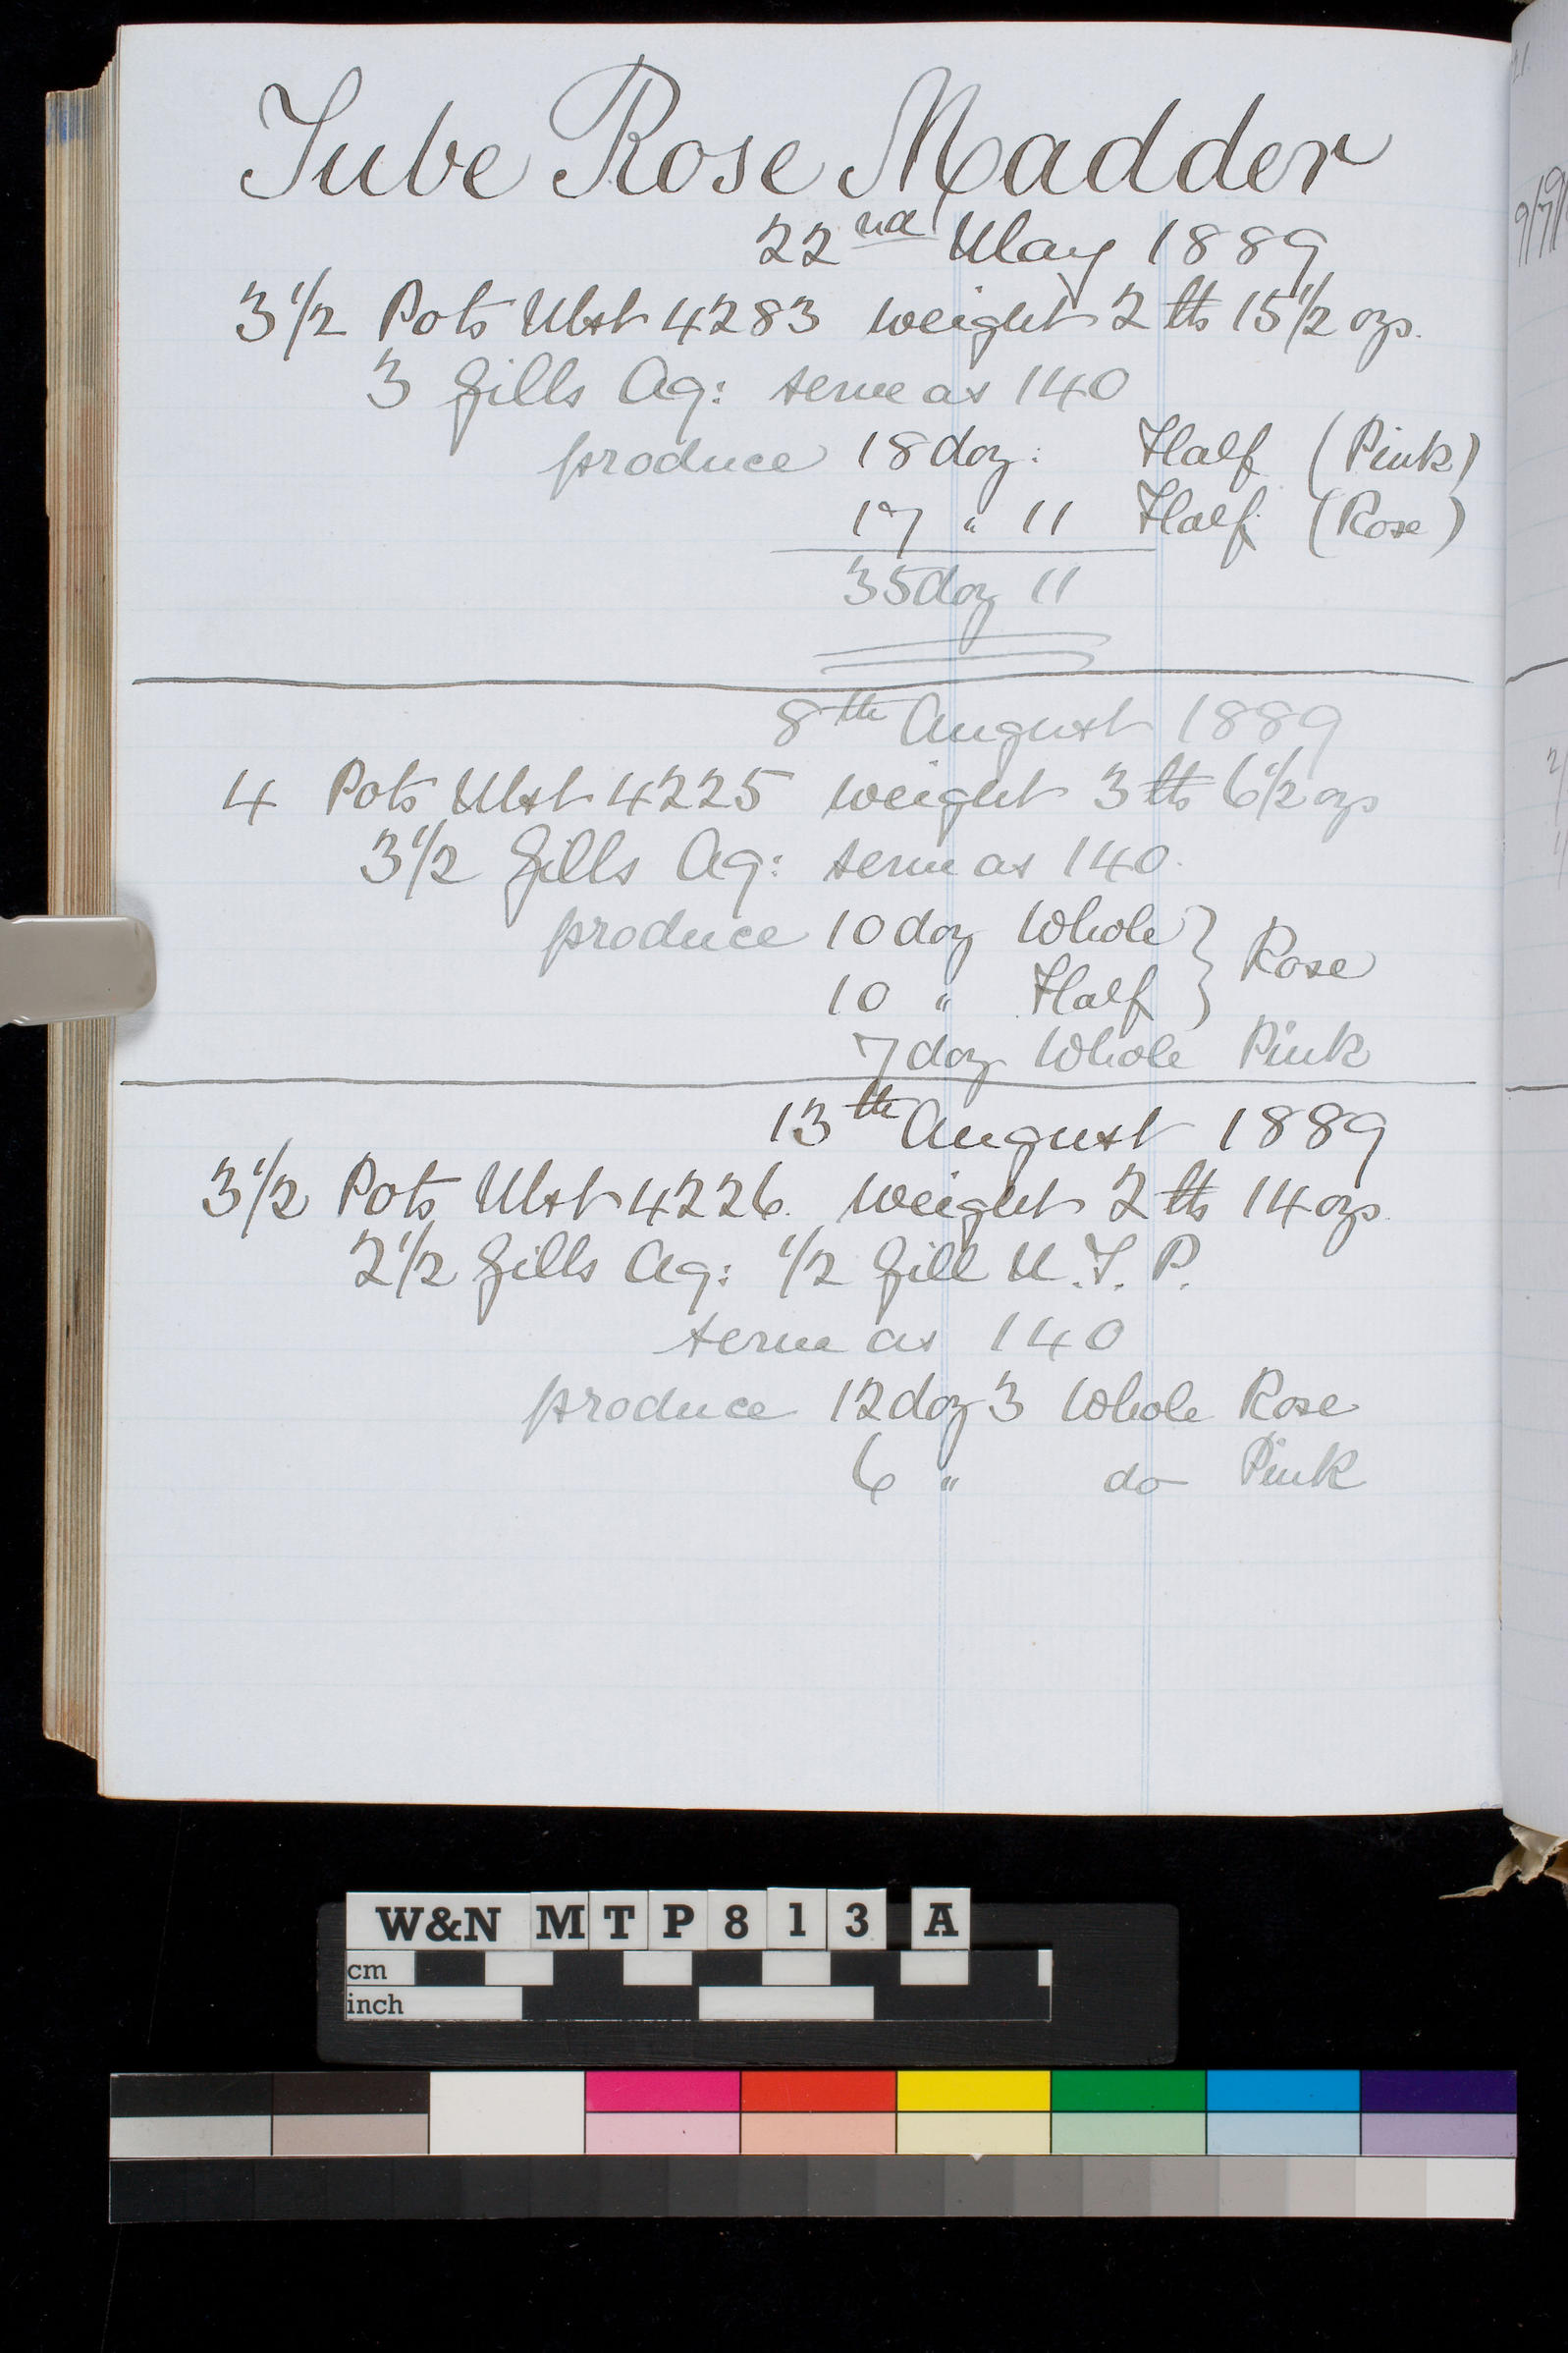 Tube Rose Madder
22nd May 1889
3 1/2 Pots Mst 4283 weight 2 lb 15 1/2 ozs.
3 gills Aq: serve as 140
produce 18 doz: Half (Pink)
17 " 11 Half (Rose)
35 doz 11
8th August 1889
4 Pots Mst 4225 weight 3 lb 6 1/2 ozs
3 1/2 gills Aq: serve as 140.
produce 10 doz Whole } Rose
10 " Half
7 doz Whole Pink
13th August 1889
3 1/2 Pots Mst 4226. weight 2 lb 14 ozs.
2 1/2 gills Aq: 1/2 gill M.T.P.
serve as 140
produce 12 doz 3 Whole Rose
6 " do Pink
W&N MTP813 A
cm
inch